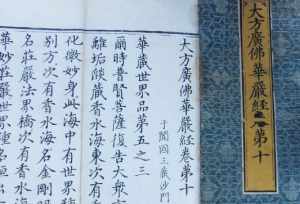 大方廣佛華嚴經卷第十
大方廣佛華嚴經卷第十
于闐國三藏沙門
華藏世界品第五之三
爾時普賢菩薩復告大衆
離垢燄藏香水海東次有
化微妙身此海中有世界種
別方次有香水海名金剛眼
名莊嚴法界橋次有香水海
華妙莊嚴世界種名恒出